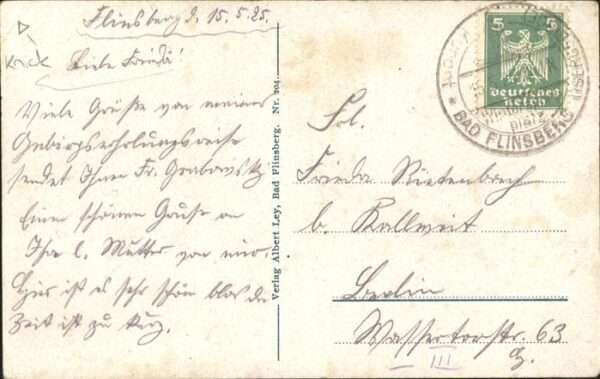 Flinsberg d. 15.5.25.
Knick
Liebe Frieda
Viele Grüße von meiner
Gebirgserholungsreise
sendet Ihnen Fr. Grabowsky
Einen schönen Gruss an
Ihre l. Mutter von mir.
Hier ist es sehr schön blos die
Zeit ist zu kurz.
Verlag Albert Ley, Bad Flinsberg. Nr. 204.
5 5
Deutsches
Reich
BAD FLINSBERG
Frl.
Frieda Rietenbach
b. Kallweit
Berlin
Wassertorstr. 63
III